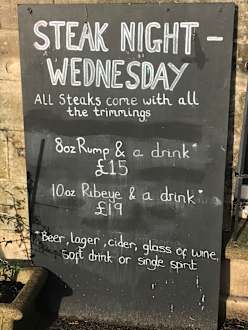 STEAK NIGHT -
WEDNESDAY
All Steaks come with all
the trimmings
8oz Rump & a drink*
£15
10oz Ribeye & a drink*
£19
*Beer, lager, cider, glass of wine,
soft drink or single spirit